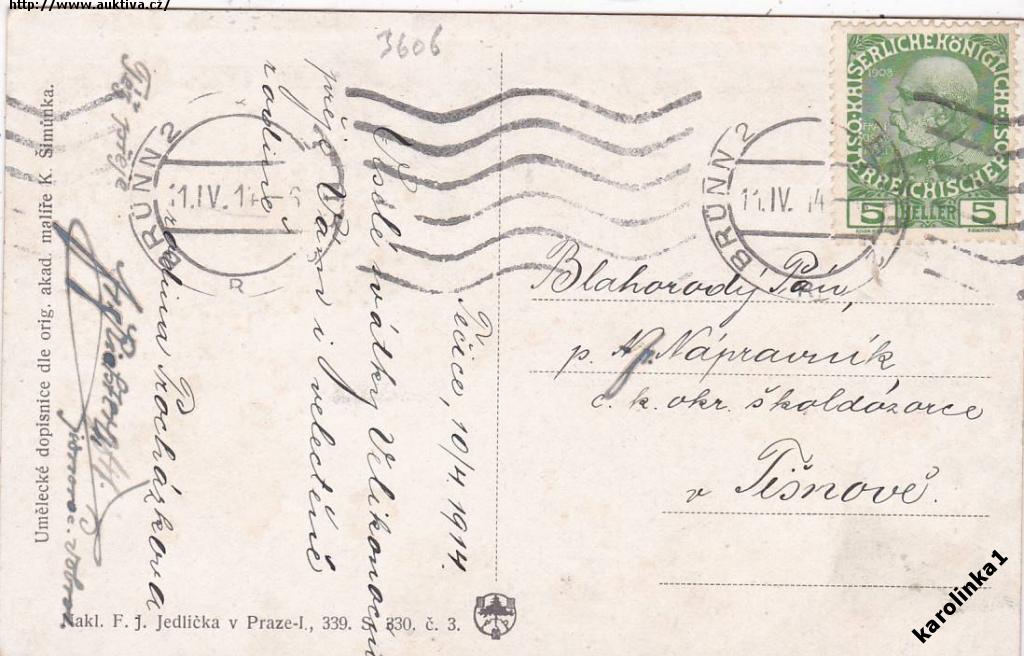 http://www.auktiva.cz/
3606
KAISERLICHE KÖNIGLICHE
ÖSTERREICHISCHE POST
1908
5 HELLER 5
BRÜNN 2
11.IV.14
BRÜNN 2
11.IV.14
Blahorodý Pán,
p. Nápravník
c. k. okr. školdozorce
v Tišnově.
Říčice, 10/4 1914.
Veselé svátky Velikonoční
přeje Vám i veletěné
rodině
rodina Procházkova
Též přeje
Umělecké dopisnice dle orig. akad. malíře K. Šimůnka.
Nakl. F. J. Jedlička v Praze-I., 339. S. 330. č. 3.
karolinka1